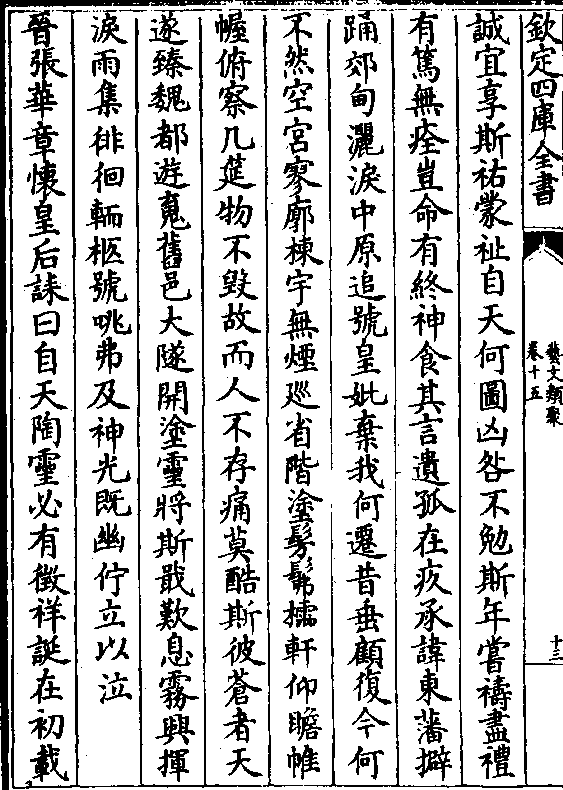 欽定四庫全書
藝文類聚
卷十五
十三
誠宜享斯祐蒙祉自天何圖凶咎不勉斯年嘗禱盡禮
有篤無痊豈命有終神食其言遺孤在疚承諱東藩擗
踊郊甸灑淚中原追號皇妣棄我何遷昔垂顧復今何
不然空宮寥廓棟宇無煙巡省階塗髣髴櫺軒仰瞻帷
幄俯察几筵物不毀故而人不存痛莫酷斯彼蒼者天
遂臻魏都遊䰟舊邑大隧開塗靈將斯戢歎息霧興揮
淚雨集徘徊輀柩號咷弗及神光既幽佇立以泣
晉張華章懷皇后誄曰自天陶靈必有徵祥誕在初載